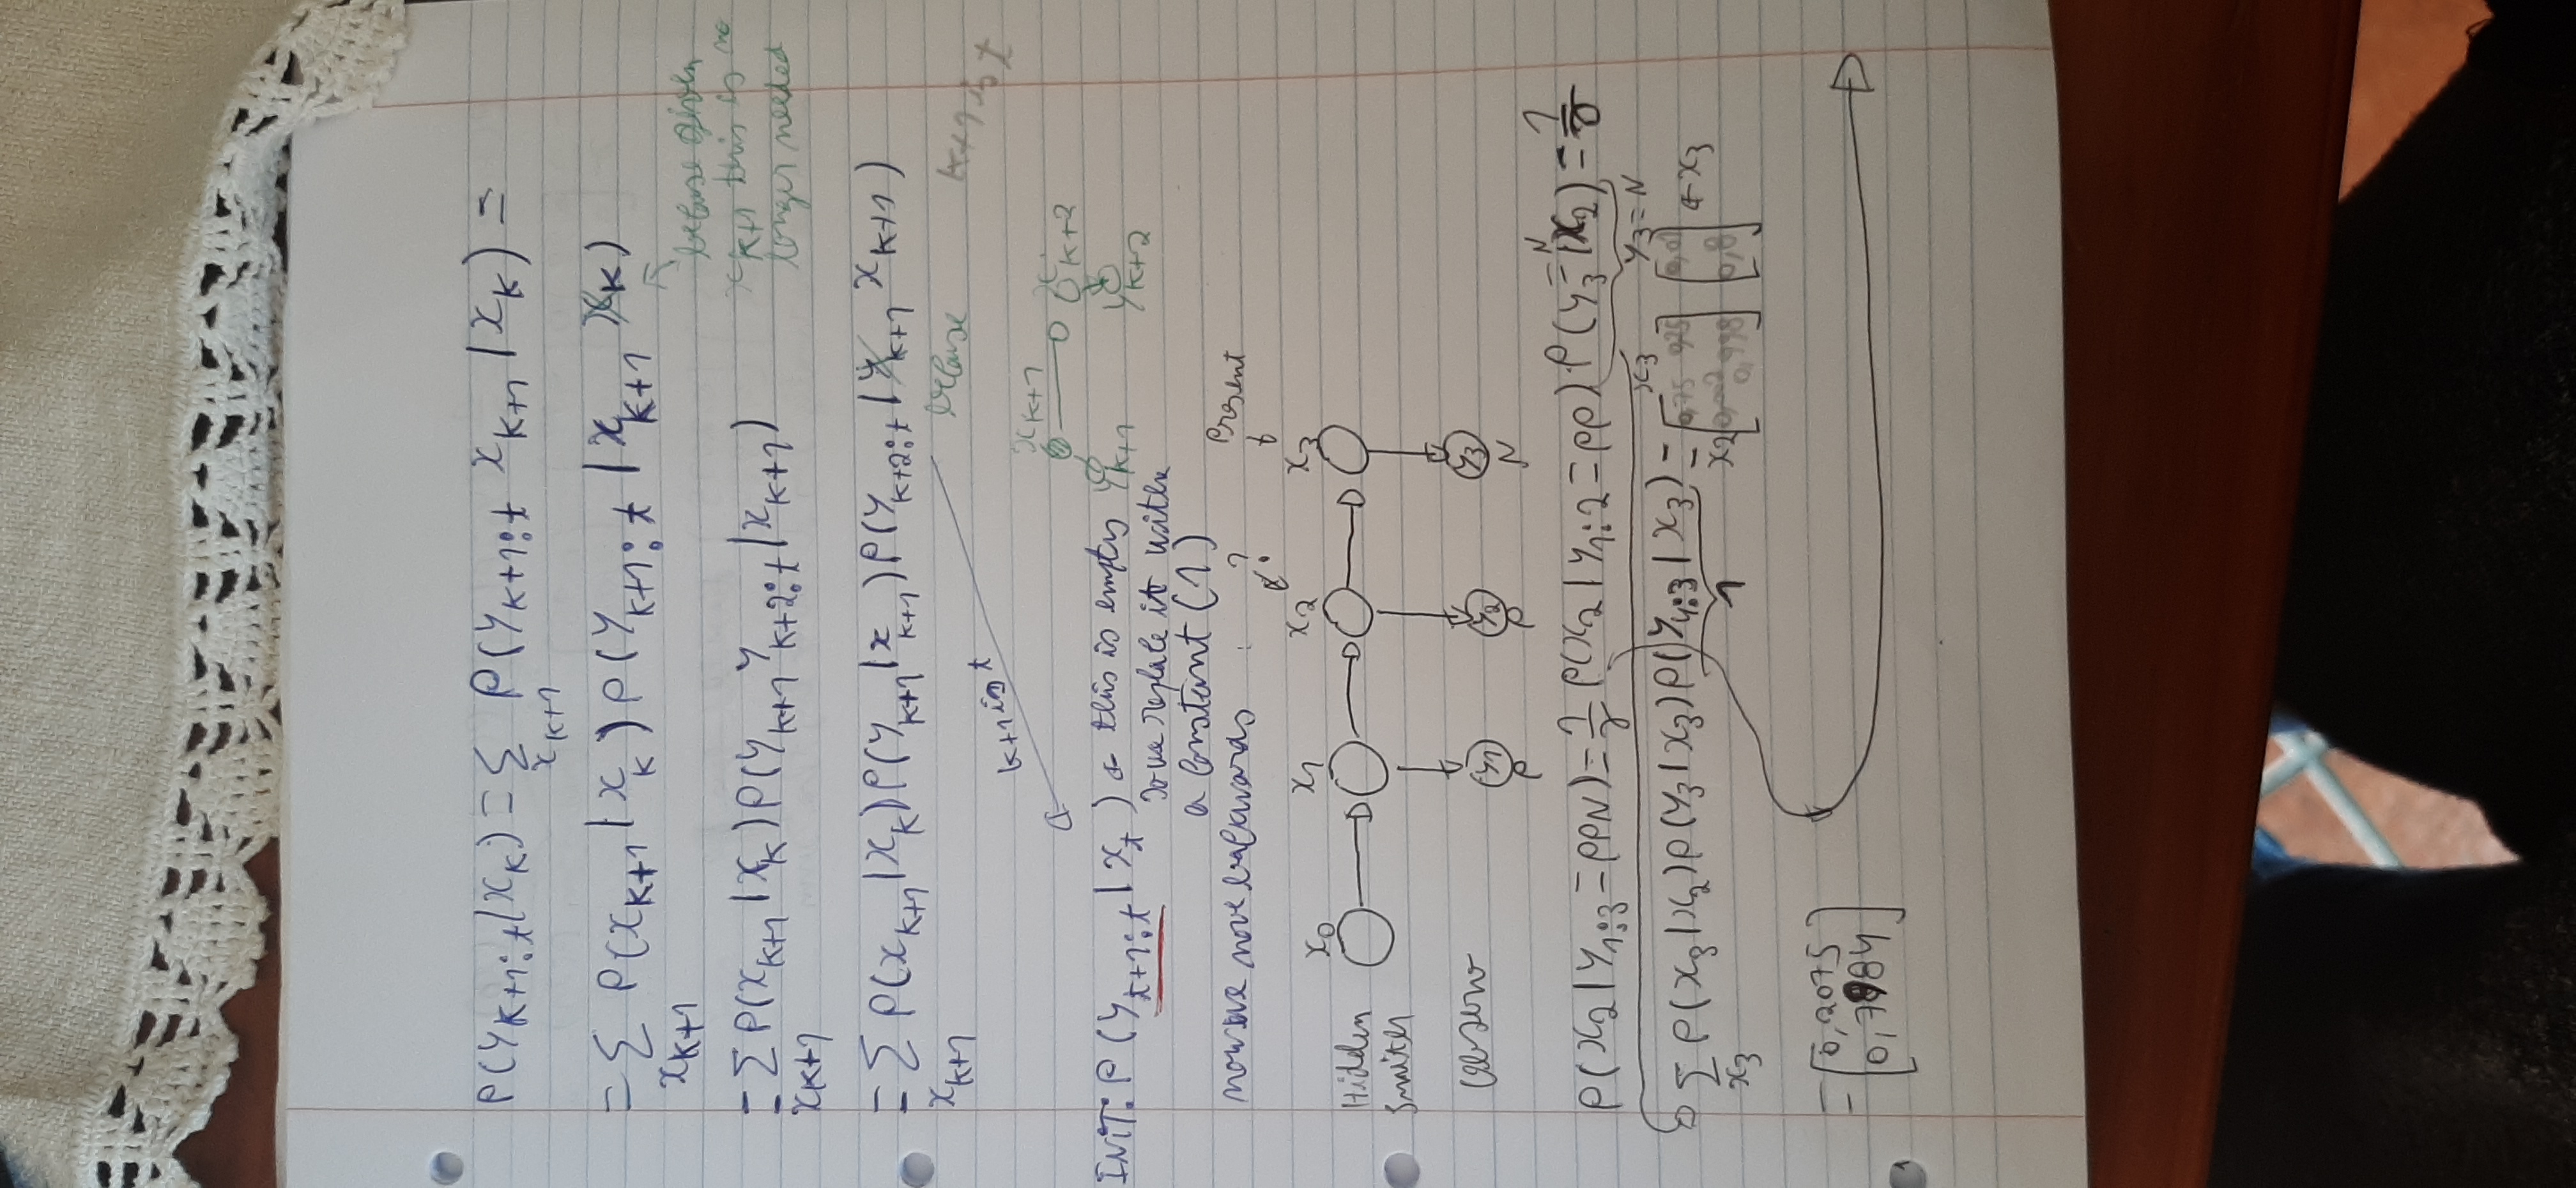 P(y_{k+1:t}|x_k) = Σ_{x_{k+1}} P(y_{k+1:t} x_{k+1} | x_k) =
= Σ_{x_{k+1}} P(x_{k+1} | x_k) P(y_{k+1:t} | x_{k+1} x_k)
because given
x_{k+1} this is no
longer needed
= Σ_{x_{k+1}} P(x_{k+1} | x_k) P(y_{k+1} y_{k+2:t} | x_{k+1})
= Σ_{x_{k+1}} P(x_{k+1} | x_k) P(y_{k+1} | x_{k+1}) P(y_{k+2:t} | y_{k+1} x_{k+1})
because
k+1 is t
k+1 is t
x_{k+1} x_{k+2}
y_{k+1} y_{k+2}
INIT: P(y_{t+1:t} | x_t) ← this is empty
so we replace it with
a constant (1)
now we move backwards :
? Present
x_0 x_1 x_2 x_3
Hidden
y_1 y_2 y_3
P P N
P(x_2 | y_{1:3} = PPN) = 1/γ P(x_2 | y_{1:2} = PP) · P(y_3 = N | x_2) = 1/γ
y_3 = N
Σ_{x_3} P(x_3 | x_2) P(y_3 | x_3) P(y_{4:3} | x_3) =
1
x_3
x_2 [0,75 0,25] [0,01] ← x_3
[0,002 0,998] [0,8]
= [0,2075]
[0,7984]